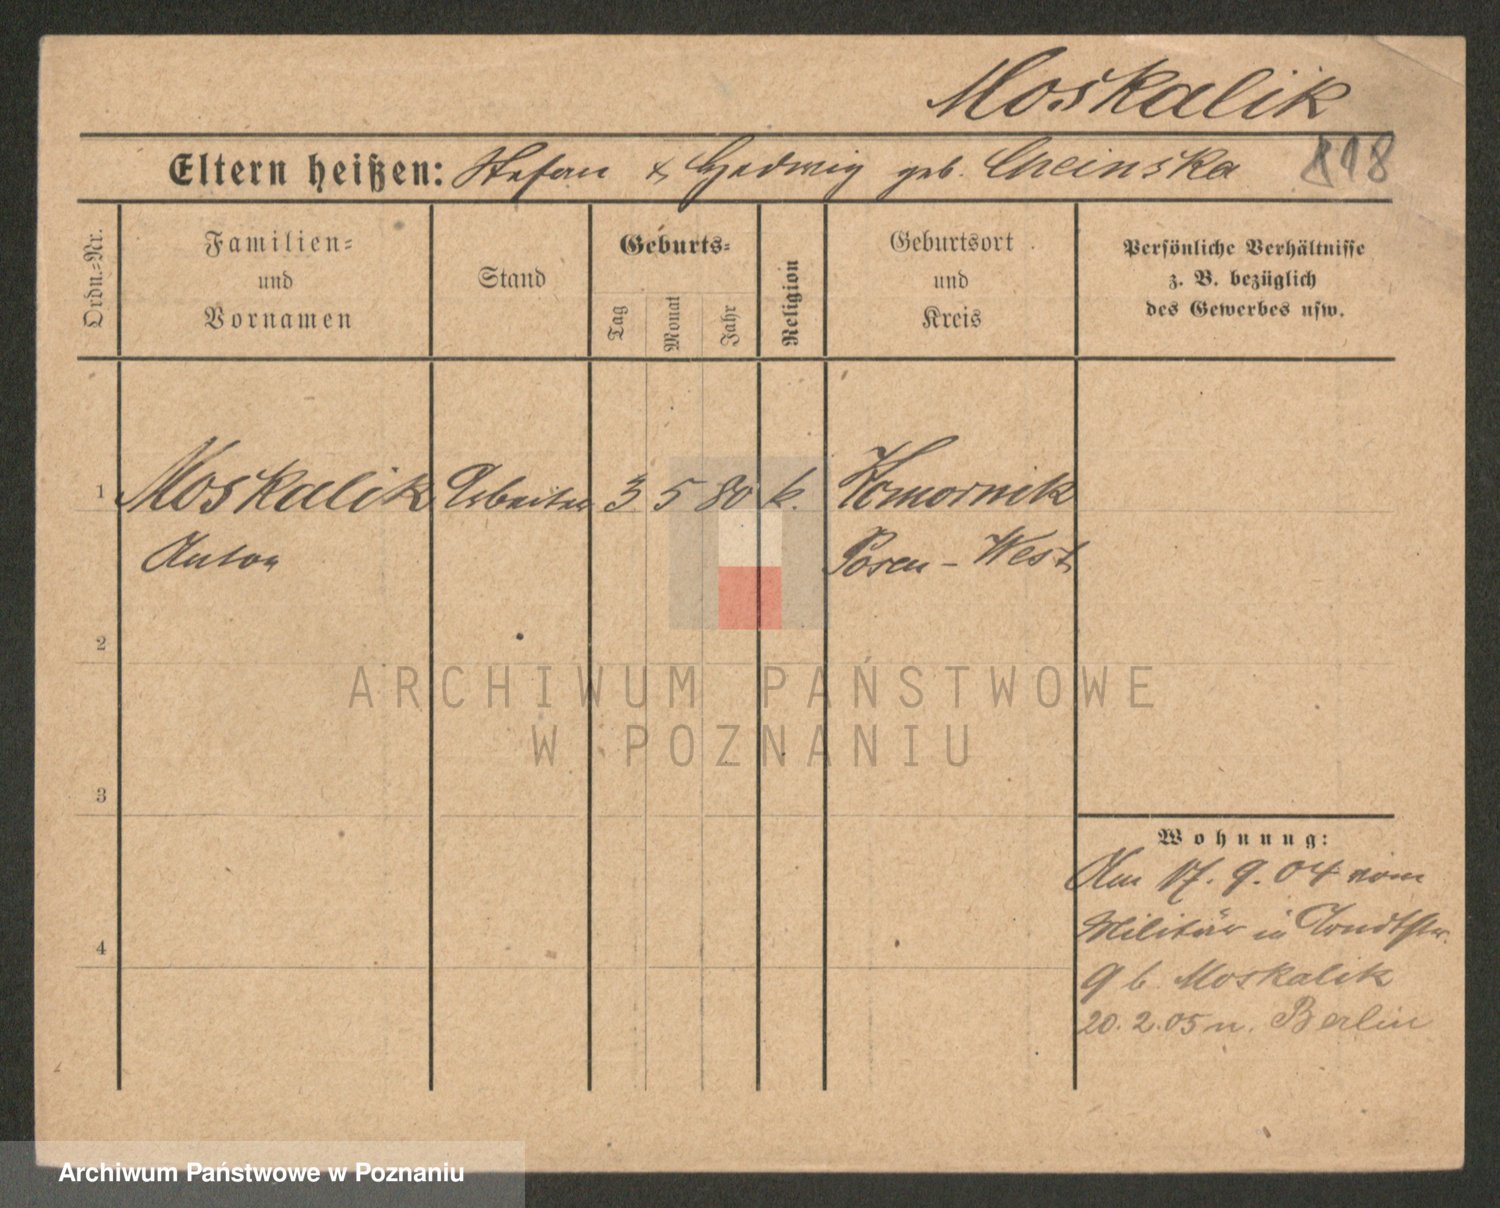 Moskalik
Eltern heißen: Stefan & Hedwig geb. Cheinska 118
Ordn.=Nr.
Familien=
und
Vornamen
Stand
Geburts=
Tag
Monat
Jahr
Religion
Geburtsort
und
Kreis
Persönliche Verhältnisse
z. B. bezüglich
des Gewerbes usw.
1 Moskalik Arbeiter 3 5 80 k. Komornik
Anton Posen - West
2
ARCHIWUM PAŃSTWOWE
W POZNANIU
3
Wohnung:
Am 17. 9. 04 vom
Militär in
4
9 b. Moskalik
20. 2. 05 n. Berlin
Archiwum Państwowe w Poznaniu